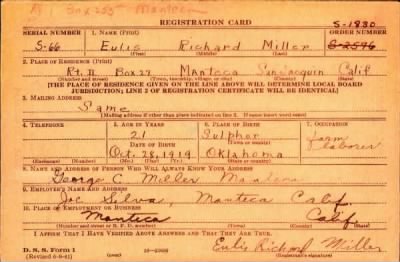 R 1 Box 255 Manteca
REGISTRATION CARD S-1830
SERIAL NUMBER 1. NAME (Print) ORDER NUMBER
S-66 Eulis Richard Miller S-2596
(First) (Middle) (Last)
2. PLACE OF RESIDENCE (Print)
Rt. II Box 27 Manteca San Joaquin Calif
(Number and street) (Town, township, village, or city) (County) (State)
[THE PLACE OF RESIDENCE GIVEN ON THE LINE ABOVE WILL DETERMINE LOCAL BOARD
JURISDICTION; LINE 2 OF REGISTRATION CERTIFICATE WILL BE IDENTICAL]
3. MAILING ADDRESS
Same
[Mailing address if other than place indicated on line 2. If same insert word same]
4. TELEPHONE 5. AGE IN YEARS 6. PLACE OF BIRTH 7. OCCUPATION
21 Sulphur farm
DATE OF BIRTH (Town or county) laborer
Oct. 28, 1919 Oklahoma
(Exchange) (Number) (Mo.) (Day) (Yr.) (State or country)
8. NAME AND ADDRESS OF PERSON WHO WILL ALWAYS KNOW YOUR ADDRESS
George C. Miller
9. EMPLOYER'S NAME AND ADDRESS
Joe Silva, Manteca Calif.
10. PLACE OF EMPLOYMENT OR BUSINESS
Manteca Calif.
(Number and street or R. F. D. number) (Town) (County) (State)
I AFFIRM THAT I HAVE VERIFIED ABOVE ANSWERS AND THAT THEY ARE TRUE.
D. S. S. Form 1
(Revised 6-9-41) Eulis Richard Miller
(Registrant's signature)